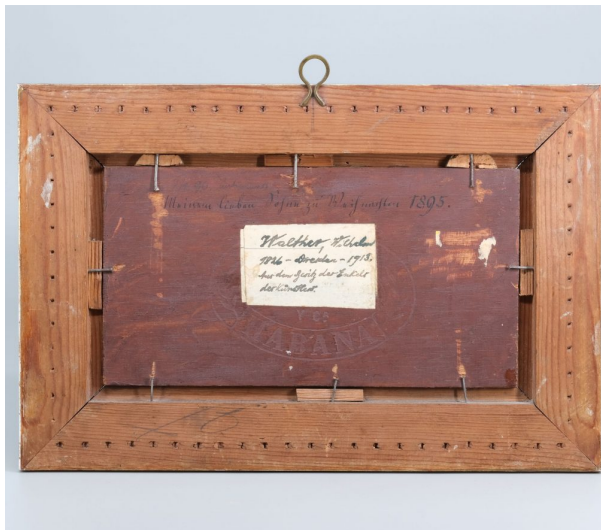 Meinem lieben Sohn zu Weihnachten 1895.
Walther, Wilhelm
1826 - Dresden - 1913.
Aus dem Besitz der Enkelin
des Künstlers.
Y Ca
HABANA